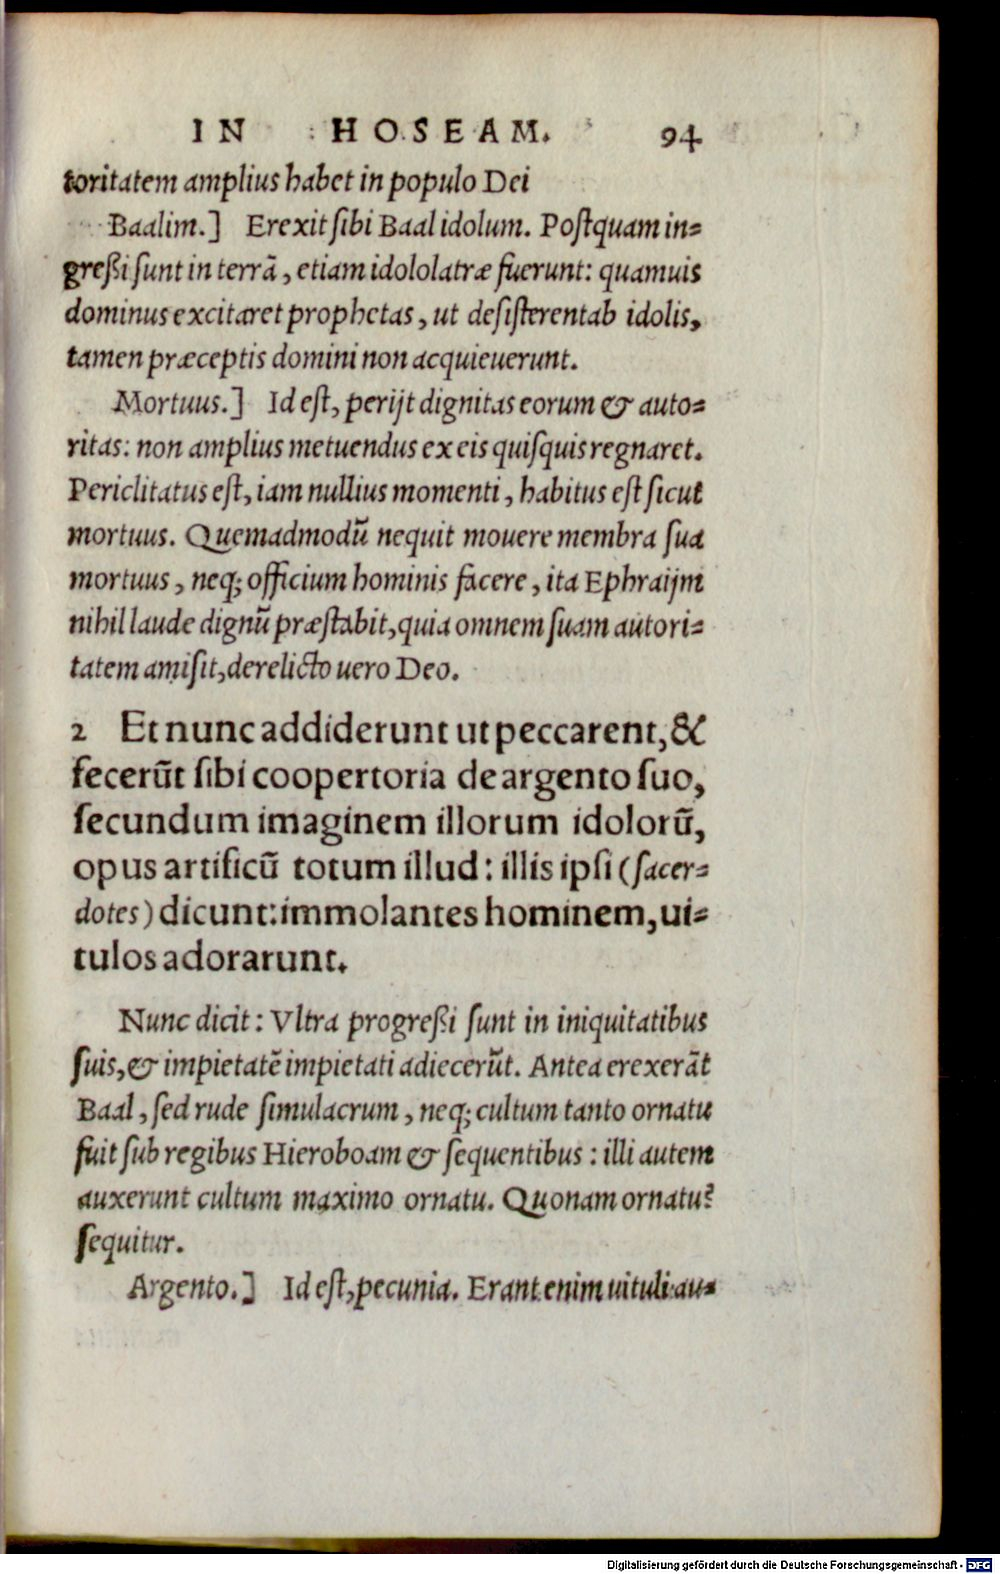 IN HOSEAM. 94
toritatem amplius habet in populo Dei
Baalim.] Erexit ſibi Baal idolum. Poſtquam in-
greßi ſunt in terrā, etiam idololatræ fuerunt: quamuis
dominus excitaret prophetas, ut deſiſterent ab idolis,
tamen præceptis domini non acquieuerunt.
Mortuus.] Id eſt, perijt dignitas eorum & auto-
ritas: non amplius metuendus ex eis quiſquis regnaret.
Periclitatus eſt, iam nullius momenti, habitus eſt ſicut
mortuus. Quemadmodū nequit mouere membra ſua
mortuus, neq; officium hominis facere, ita Ephraijm
nihil laude dignū præſtabit, quia omnem ſuam autori-
tatem amiſit, derelicto uero Deo.
2 Et nunc addiderunt ut peccarent, &
fecerūt ſibi coopertoria de argento ſuo,
ſecundum imaginem illorum idolorū,
opus artificū totum illud: illis ipſi (ſacer-
dotes) dicunt: immolantes hominem, ui-
tulos adorarunt.
Nunc dicit: Vltra progreßi ſunt in iniquitatibus
ſuis, & impietatē impietati adiecerūt. Antea erexerāt
Baal, ſed rude ſimulacrum, neq; cultum tanto ornatu
fuit ſub regibus Hieroboam & ſequentibus: illi autem
auxerunt cultum maximo ornatu. Quonam ornatu?
ſequitur.
Argento.] Id eſt, pecunia. Erant enim uituli au-
Digitalisierung gefördert durch die Deutsche Forschungsgemeinschaft - DFG